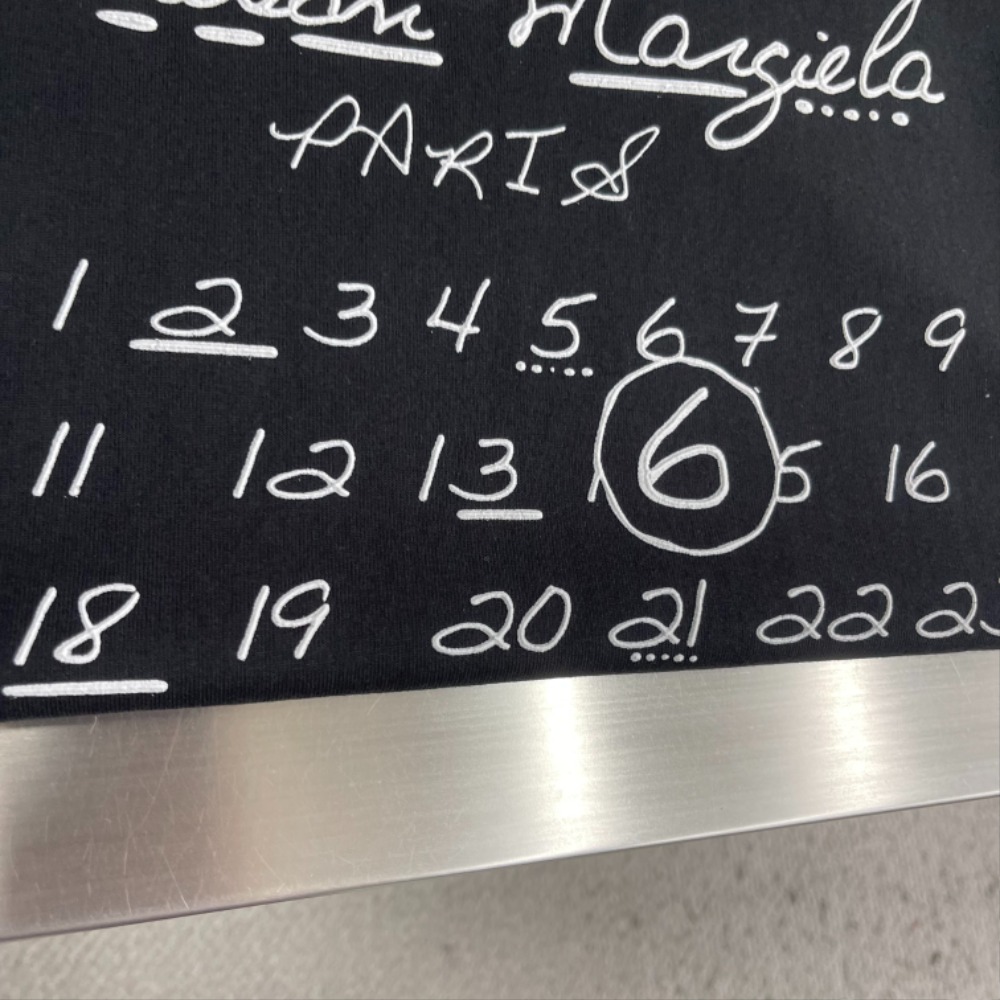 Margiela
PARIS
1 2 3 4 5 6 7 8 9
11 12 13 6 5 16
18 19 20 21 22 2